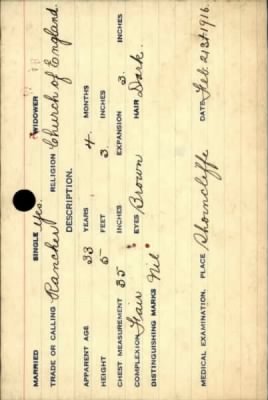 MARRIED SINGLE Yes. WIDOWER
TRADE OR CALLING Rancher RELIGION Church of England.
DESCRIPTION.
APPARENT AGE 33 YEARS 4. MONTHS
HEIGHT 5 FEET 3. INCHES
CHEST MEASUREMENT 35 INCHES EXPANSION 3. INCHES
COMPLEXION Fair EYES Brown HAIR Dark.
DISTINGUISHING MARKS Nil
MEDICAL EXAMINATION. PLACE Shorncliffe DATE Feb. 21st 1916.